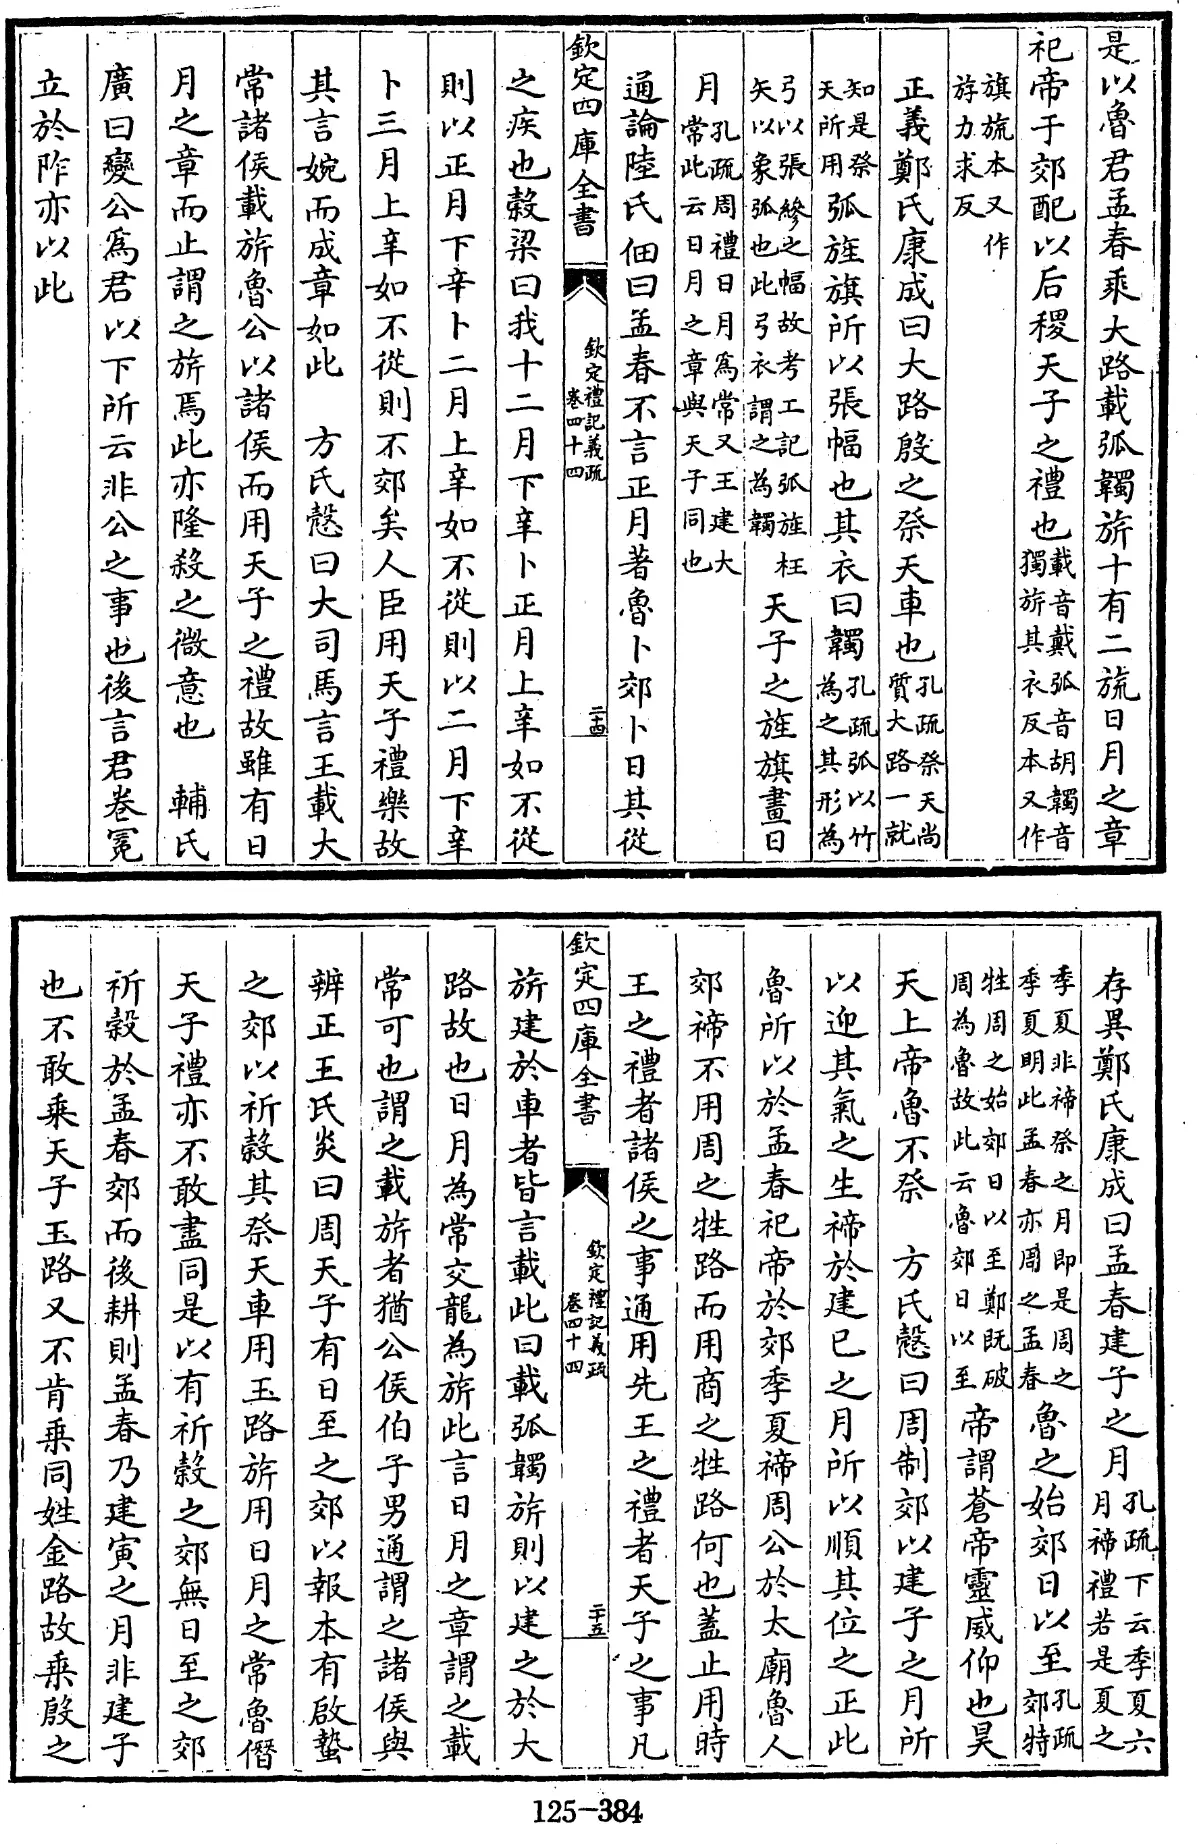 是以魯君孟春乘大路載弧韣旂十有二旒日月之章
祀帝于郊配以后稷天子之禮也載音戴弧音胡韣音
獨旂其衣反本又作
旗旒本又作
斿力求反
正義鄭氏康成曰大路殷之祭天車也孔疏祭天尚
質大路一就
知是祭
天所用弧旌旗所以張幅也其衣曰韣孔疏弧以竹
為之其形為
弓以張縿之幅故考工記弧旌枉
矢以象弧也此弓衣謂之為韣天子之旌旗畫日
月孔疏周禮日月為常又王建大
常此云日月之章與天子同也
通論陸氏佃曰孟春不言正月著魯卜郊卜日其從
欽定四庫全書
欽定禮記義疏
卷四十四
二十四
之疾也穀梁曰我十二月下辛卜正月上辛如不從
則以正月下辛卜二月上辛如不從則以二月下辛
卜三月上辛如不從則不郊矣人臣用天子禮樂故
其言婉而成章如此　方氏慤曰大司馬言王載大
常諸侯載旂魯公以諸侯而用天子之禮故雖有日
月之章而止謂之旂焉此亦隆殺之微意也　輔氏
廣曰變公為君以下所云非公之事也後言君卷冕
立於阼亦以此
存異鄭氏康成曰孟春建子之月孔疏下云季夏六
月禘禮若是夏之
季夏非禘祭之月即是周之
季夏明此孟春亦周之孟春魯之始郊日以至孔疏
郊特
牲周之始郊日以至鄭既破
周為魯故此云魯郊日以至帝謂蒼帝靈威仰也昊
天上帝魯不祭　方氏慤曰周制郊以建子之月所
以迎其氣之生禘於建巳之月所以順其位之正此
魯所以於孟春祀帝於郊季夏禘周公於太廟魯人
郊禘不用周之牲路而用商之牲路何也蓋止用時
王之禮者諸侯之事通用先王之禮者天子之事凡
欽定四庫全書
欽定禮記義疏
卷四十四
二十五
旂建於車者皆言載此曰載弧韣旂則以建之於大
路故也日月為常交龍為旂此言日月之章謂之載
常可也謂之載旂者猶公侯伯子男通謂之諸侯與
辨正王氏炎曰周天子有日至之郊以報本有啟蟄
之郊以祈穀其祭天車用玉路旂用日月之常魯僭
天子禮亦不敢盡同是以有祈穀之郊無日至之郊
祈穀於孟春郊而後耕則孟春乃建寅之月非建子
也不敢乘天子玉路又不肯乘同姓金路故乘殷之
125-384